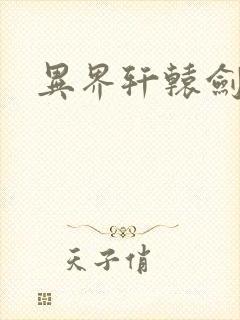 異界轩轅劍
天子俏